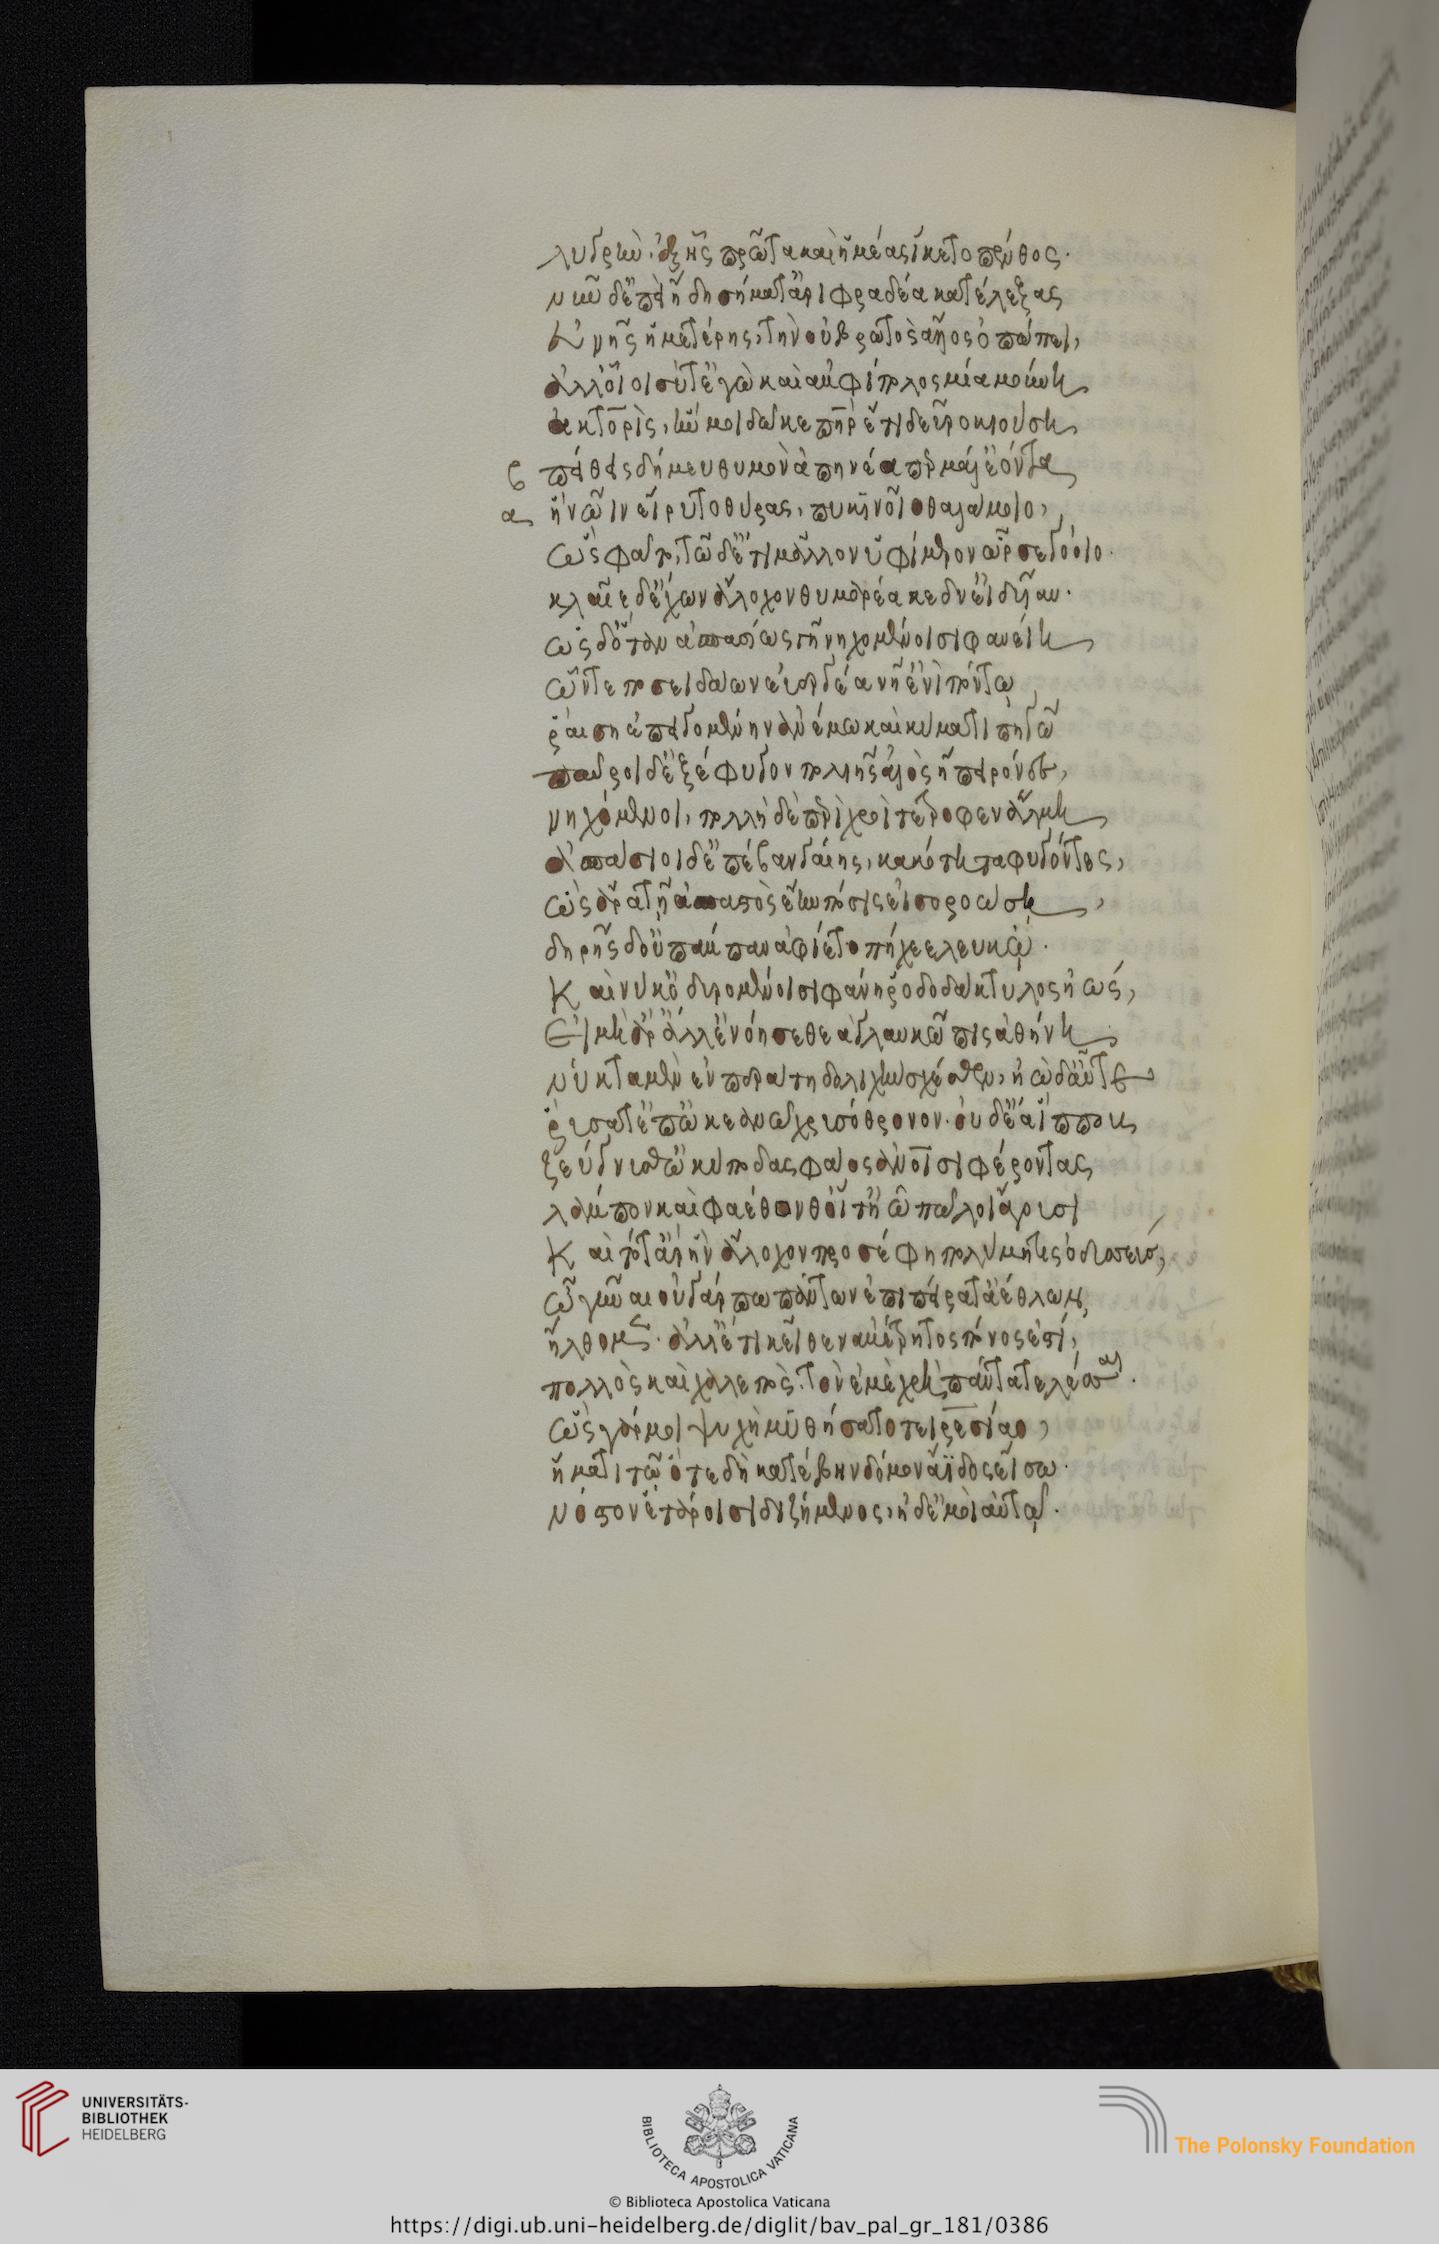 λυγρὴν, ἐξ ἧς πρῶτα καὶ ἡμέας ἵκετο πένθος.
νῦν δ' ἐπεὶ ἤδη σήματ' ἀριφραδέα κατέλεξας
εὐνῆς ἡμετέρης, τὴν οὐ βροτὸς ἄλλος ὀπώπει,
ἀλλ' οἶοι σύ τ' ἐγὼ καὶ ἀμφίπολος μία μούνη
ἀκτορὶς, ἥν μοι δῶκε πατὴρ ἔτι δεῦρο κιούση,
β πείθεις δή μευ θυμὸν ἀπηνέα περ μάλ' ἐόντα,
α ἣ νῶιν εἴρυτο θύρας, πυκινοῦ θαλάμοιο,
ὣς φάτο, τῷ δ' ἔτι μᾶλλον ὑφ' ἵμερον ὦρσε γόοιο.
κλαῖε δ' ἔχων ἄλοχον θυμαρέα κεδν' εἰδυῖαν.
ὡς δ' ὅταν ἀσπασίως γῆ νηχομένοισι φανείη
ὧν τε ποσειδάων εὐεργέα νῆ' ἐνὶ πόντω
ῥαίση ἐπειγομένην ἀνέμω καὶ κύματι πηγῷ
παῦροι δ' ἐξέφυγον πολιῆς ἁλὸς ἤπειρόνδε,
νηχόμενοι, πολλὴ δὲ περὶ χροῒ τέτροφεν ἅλμη,
ἀσπάσιοι δ' ἐπέβαν γαίης, κακότητα φυγόντες,
ὣς ἄρα τῇ ἀσπαστὸς ἔην πόσις εἰσοροώση,
δειρῆς δ' οὔπω πάμπαν ἀφίετο πήχεε λευκώ.
Καί νύ κ' ὀδυρομένοισι φάνη ῥοδοδάκτυλος ἠώς,
Εἰ μὴ ἄρ' ἄλλ' ἐνόησε θεὰ γλαυκῶπις ἀθήνη.
νύκτα μὲν ἐν περάτη δολιχὴν σχέθεν, ἠῶ δ' αὖτε
ῥύσατ' ἐπ' ὠκεανῷ χρυσόθρονον. οὐδ' ἔα ἵππους
ζεύγνυσθ' ὠκύποδας φάος ἀνθρώποισι φέροντας
λάμπον καὶ φαέθονθ' οἵ τ' ἠῶ πῶλοι ἄγουσι
Καὶ τότ' ἄρ' ἣν ἄλοχον προσέφη πολύμητις ὀδυσσεύς,
ὦ γύναι οὐ γάρ πω πάντων ἐπὶ πείρατ' ἀέθλων,
ἤλθομεν. ἀλλ' ἔτι κεῖθεν ἀμέτρητος πόνος ἐστί,
πολλὸς καὶ χαλεπὸς. τὸν ἐμὲ χρὴ πάντα τελέσσαι.
ὣς γάρ μοι ψυχὴ μυθήσατο τειρεσίαο,
ἤματι τῷ ὅτε δὴ κατέβην δόμον ἄϊδος εἴσω.
νόστον ἑτάροισι διζήμενος, ἠδ' ἐμοὶ αὐτῷ.
UNIVERSITÄTS-
BIBLIOTHEK
HEIDELBERG
BIBLIOTECA APOSTOLICA VATICANA
The Polonsky Foundation
© Biblioteca Apostolica Vaticana
https://digi.ub.uni-heidelberg.de/diglit/bav_pal_gr_181/0386